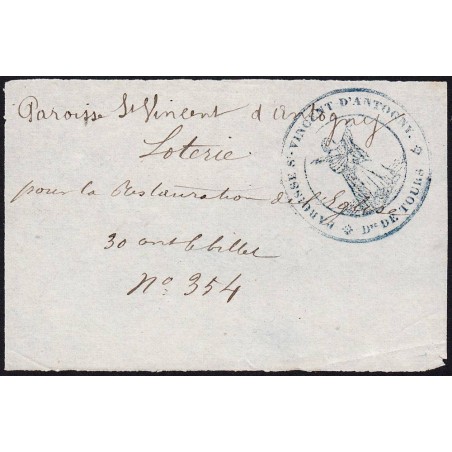 Paroisse St Vincent d'Antogny
Loterie
pour la Restauration de l'Eglise
30 cent le billet
No 354
PAROISSE St VINCENT D'ANTOGNY.
Dse DE TOURS